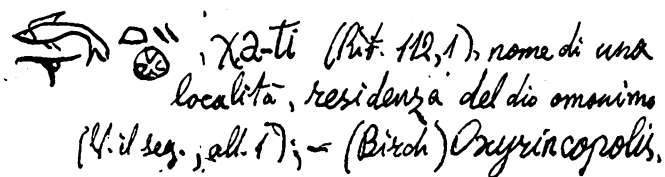 ; χa-ti (Rit. 112,1), nome di una
località, residenza del dio omonimo
(V. il seg., all. 1); – (Birch) Oxyrincopolis.